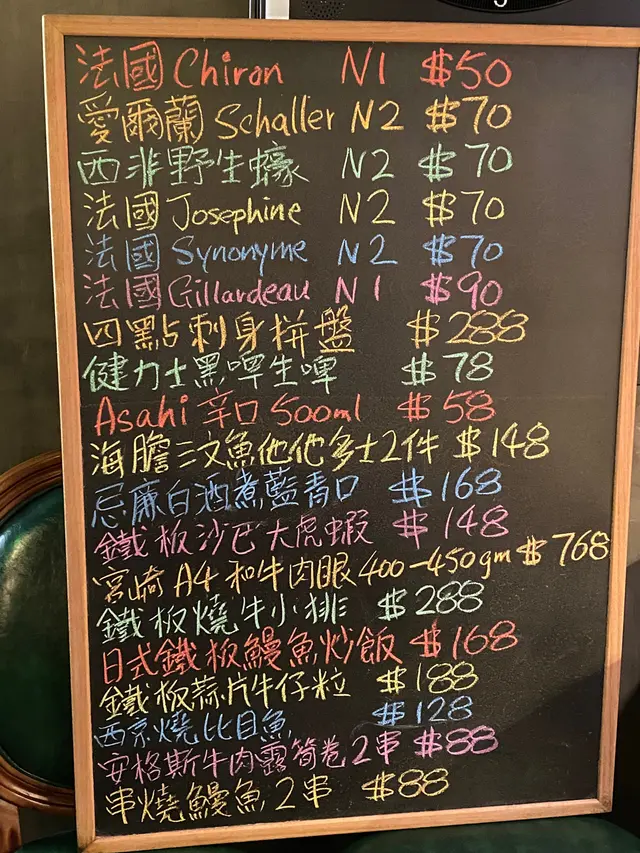 法國 Chiron N1 $50
愛爾蘭 Schaller N2 $70
西非野生蠔 N2 $70
法國 Josephine N2 $70
法國 Synonyme N2 $70
法國 Gillardeau N1 $90
四點刺身拼盤 $288
健力士黑啤生啤 $78
Asahi 辛口 500ml $58
海膽三文魚他他多士2件 $148
忌廉白酒煮藍青口 $168
鐵板沙巴大虎蝦 $148
宮崎 A4 和牛肉眼 400-450gm $768
鐵板燒牛小排 $288
日式鐵板鰻魚炒飯 $168
鐵板蒜片牛仔粒 $188
西京燒比目魚 $128
安格斯牛肉露筍卷2串 $88
串燒鰻魚2串 $88